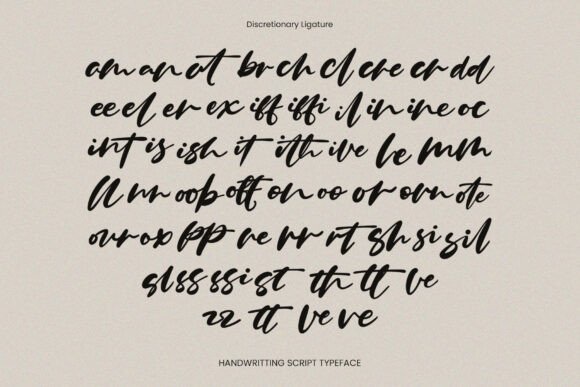 Discretionary Ligature
am an at br ch cl cre er dd
ee el er ex iff iffi il in ine oc
int is ish it ith ive le mm
ll nn oob off on oo or orn ote
our ox pp re rr rt sh si sil
sl ss ssi st th tt ve
zz tt ve ve
HANDWRITTING SCRIPT TYPEFACE